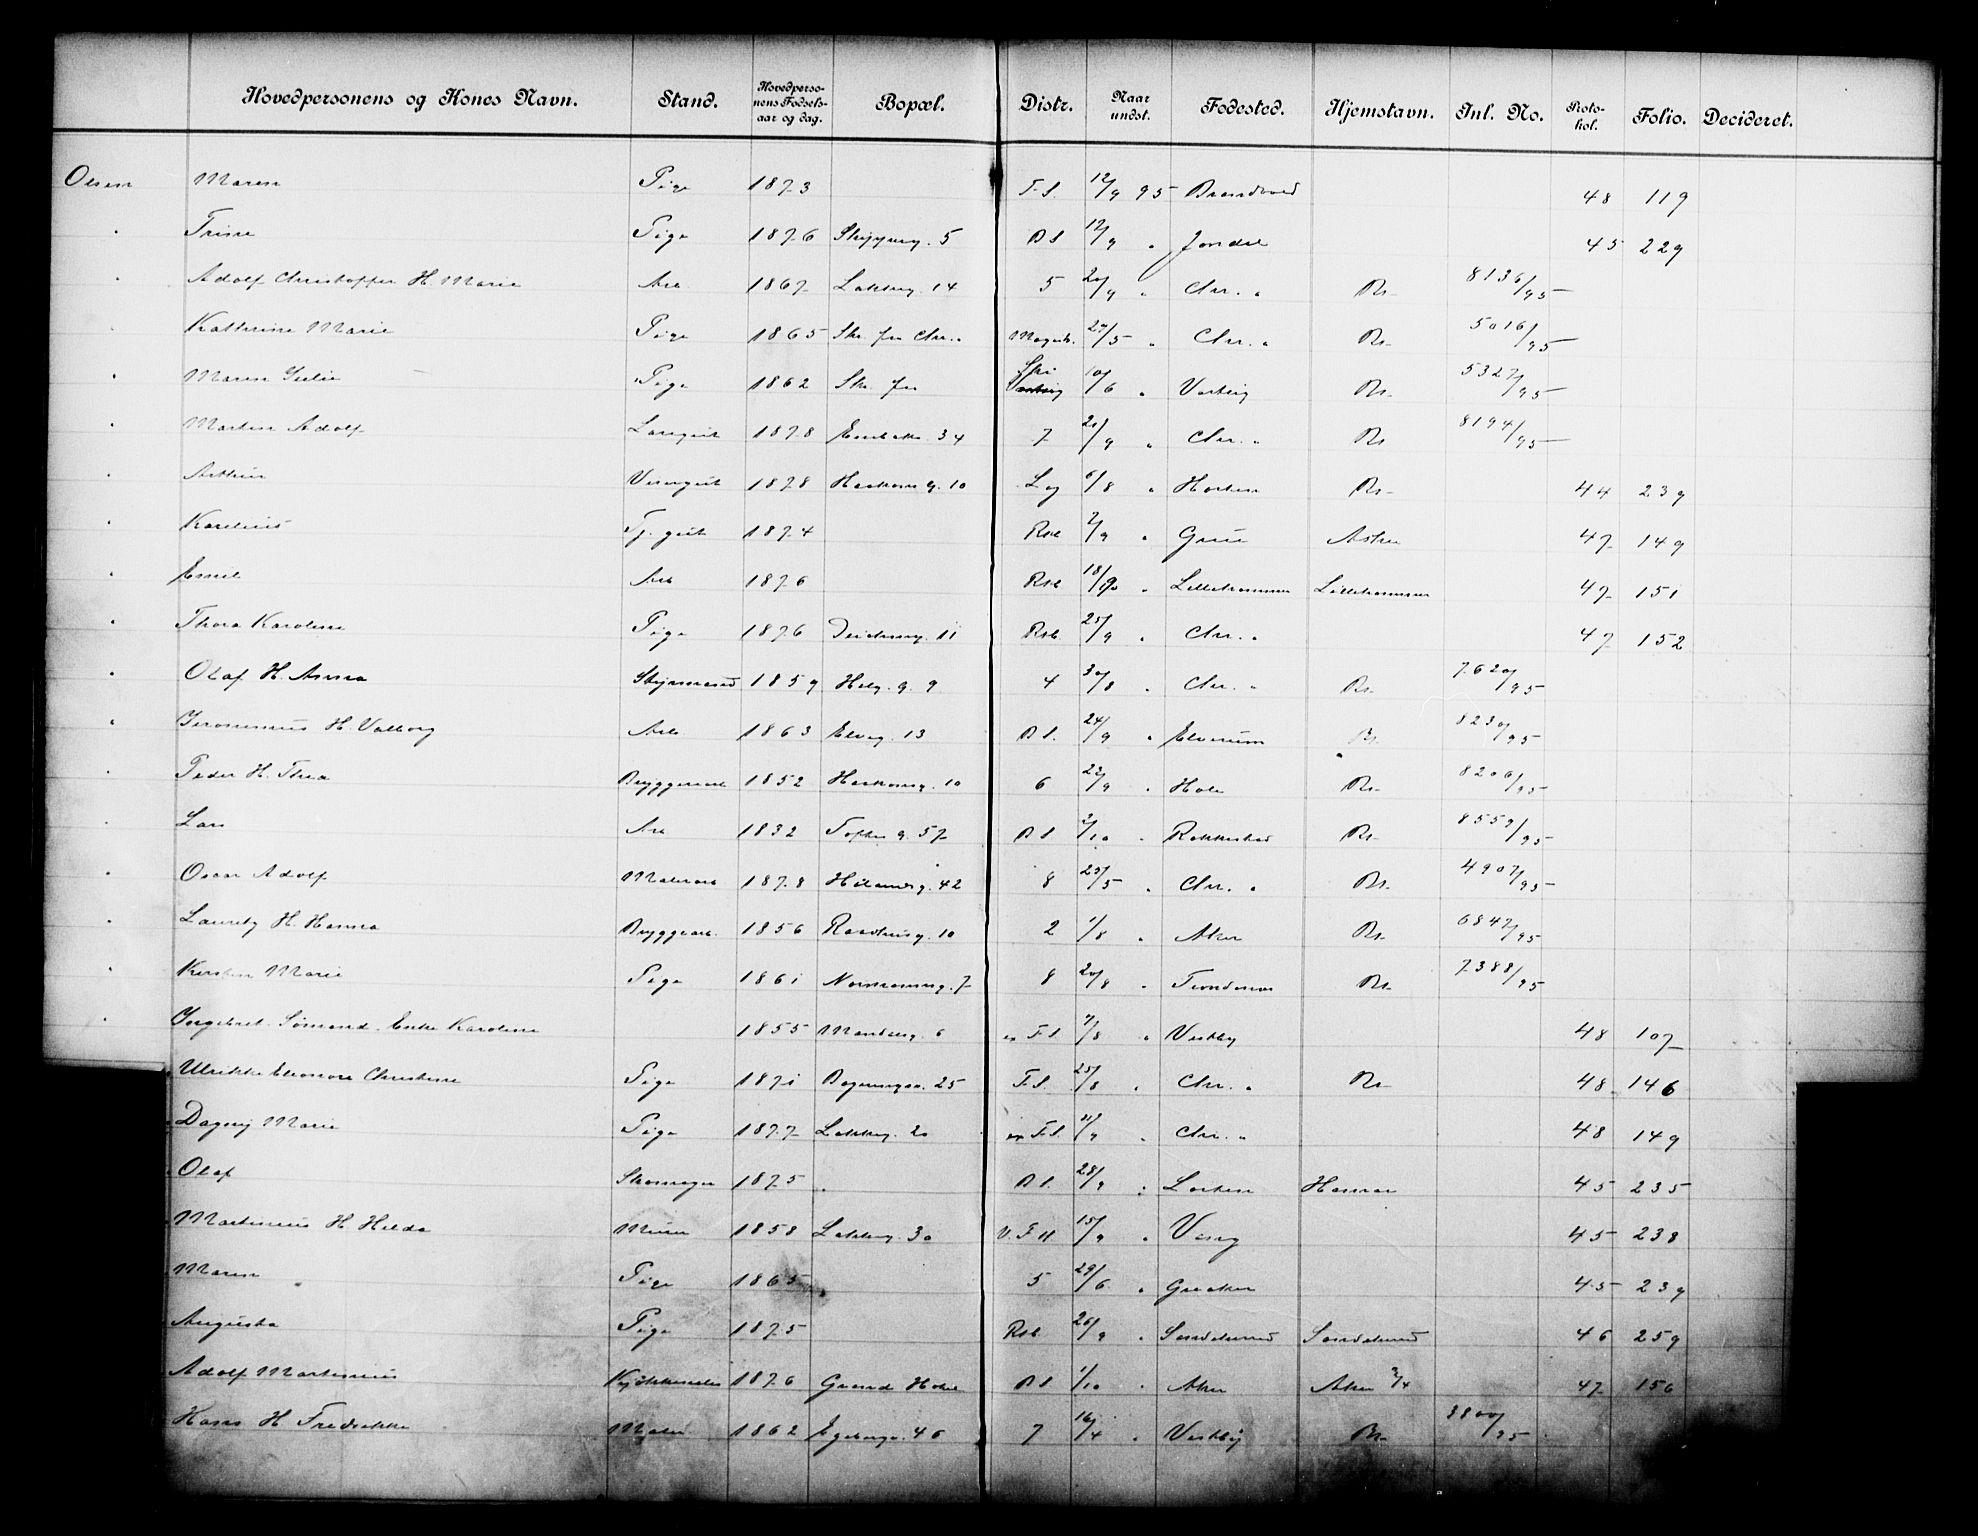 Hovedpersonens og Kones Navn. Stand. Hovedpersonens Fødsels-aar og dag. Bopæl. Distr. Naar undst. Fødested. Hjemstavn. Inl. No. Protokol. Folio. Decideret.
Olsen Maren Pige 1873 F.S. 12/9 95 Brandvold 48 119
" Trine Pige 1876 5 B S 12/9 " 45 229
" Adolf Christoffer H. Marie Arb 1867 Lakkeg. 14 5 20/9 " Chr. " Br. 8136/95
" Kathrine Marie Pige 1865 Skr. fra Chr. " Magistr. 29/5 " Chr. " Br. 5016/95
" Maren Julie Pige 1862 Skr. fra 10/6 " Br. 5327/95
" Martin Adolf 1878 34 7 21/9 " Chr. " Br 8194/95
" Visergut 1878 10 6/8 " Horten Br. 44 239
" Karelius Tj. gut 1874 Rst 2/9 " Grue 47 149
" Emil Arb 1876 Rst 18/9 " Lillehammer Lillehammer 47 151
" Thora Karoline Pige 1876 Deichmsg. 11 Rst. 25/9 " Chr. " 47 152
" Olaf H. Anna Styrmand 1859 Helg. g. 9 4 30/8 " Chr. " Br. 7620/95
" Jeronimus H. Valborg Arb 1863 Elveg. 13 B S. 24/9 " Elverum Br. 8230/95
" Peder H. Thea Bryggerarb 1852 10 6 22/9 " Hole Br. 8206/95
" Lars Arb 1832 Toftes g. 57 B S. 2/10 " Rakkestad Br. 8559/95
" Oscar Adolf Malerarb 1878 42 8 25/5 " Chr. " Br. 4907/95
" Lauritz H. Hanna Bryggearb. 1856 Raadhusg. 10 2 1/8 " Aker Br. 6847/95
" Kirsten Marie Pige 1861 Normannsg. 7 8 20/8 " Trondenes Br. 7388/95
" Ingebret Sømand Enke Karoline 1855 Mandalsg. 6 F S. 7/8 " Vestby 48 107
Ulrikke Eleonora Christine Pige 1871 25 F. S. 25/8 " Chr. " Br. 48 146
Dagny Marie Pige 1877 Lakkeg. 20 F S. 11/9 " Chr. " 48 149
Olaf Skomager 1875 B S. 28/9 " Løiten Hamar 45 235
Martinius H. Hilda Murer 1858 Lakkeg. 30 V. F H. 15/9 " Vang 45 238
Maren Pige 1865 5 29/6 " 45 239
Augusta Pige 1875 Rst. 26/9 " 46 259
Adolf Martinius 1876 Grand Hotel B S. 1/10 " Aker Aker 2/4 47 156
Hans H Fredrikke Maler 1862 Egebergs. 46 7 16/4 " Vestby Br. 3800/95